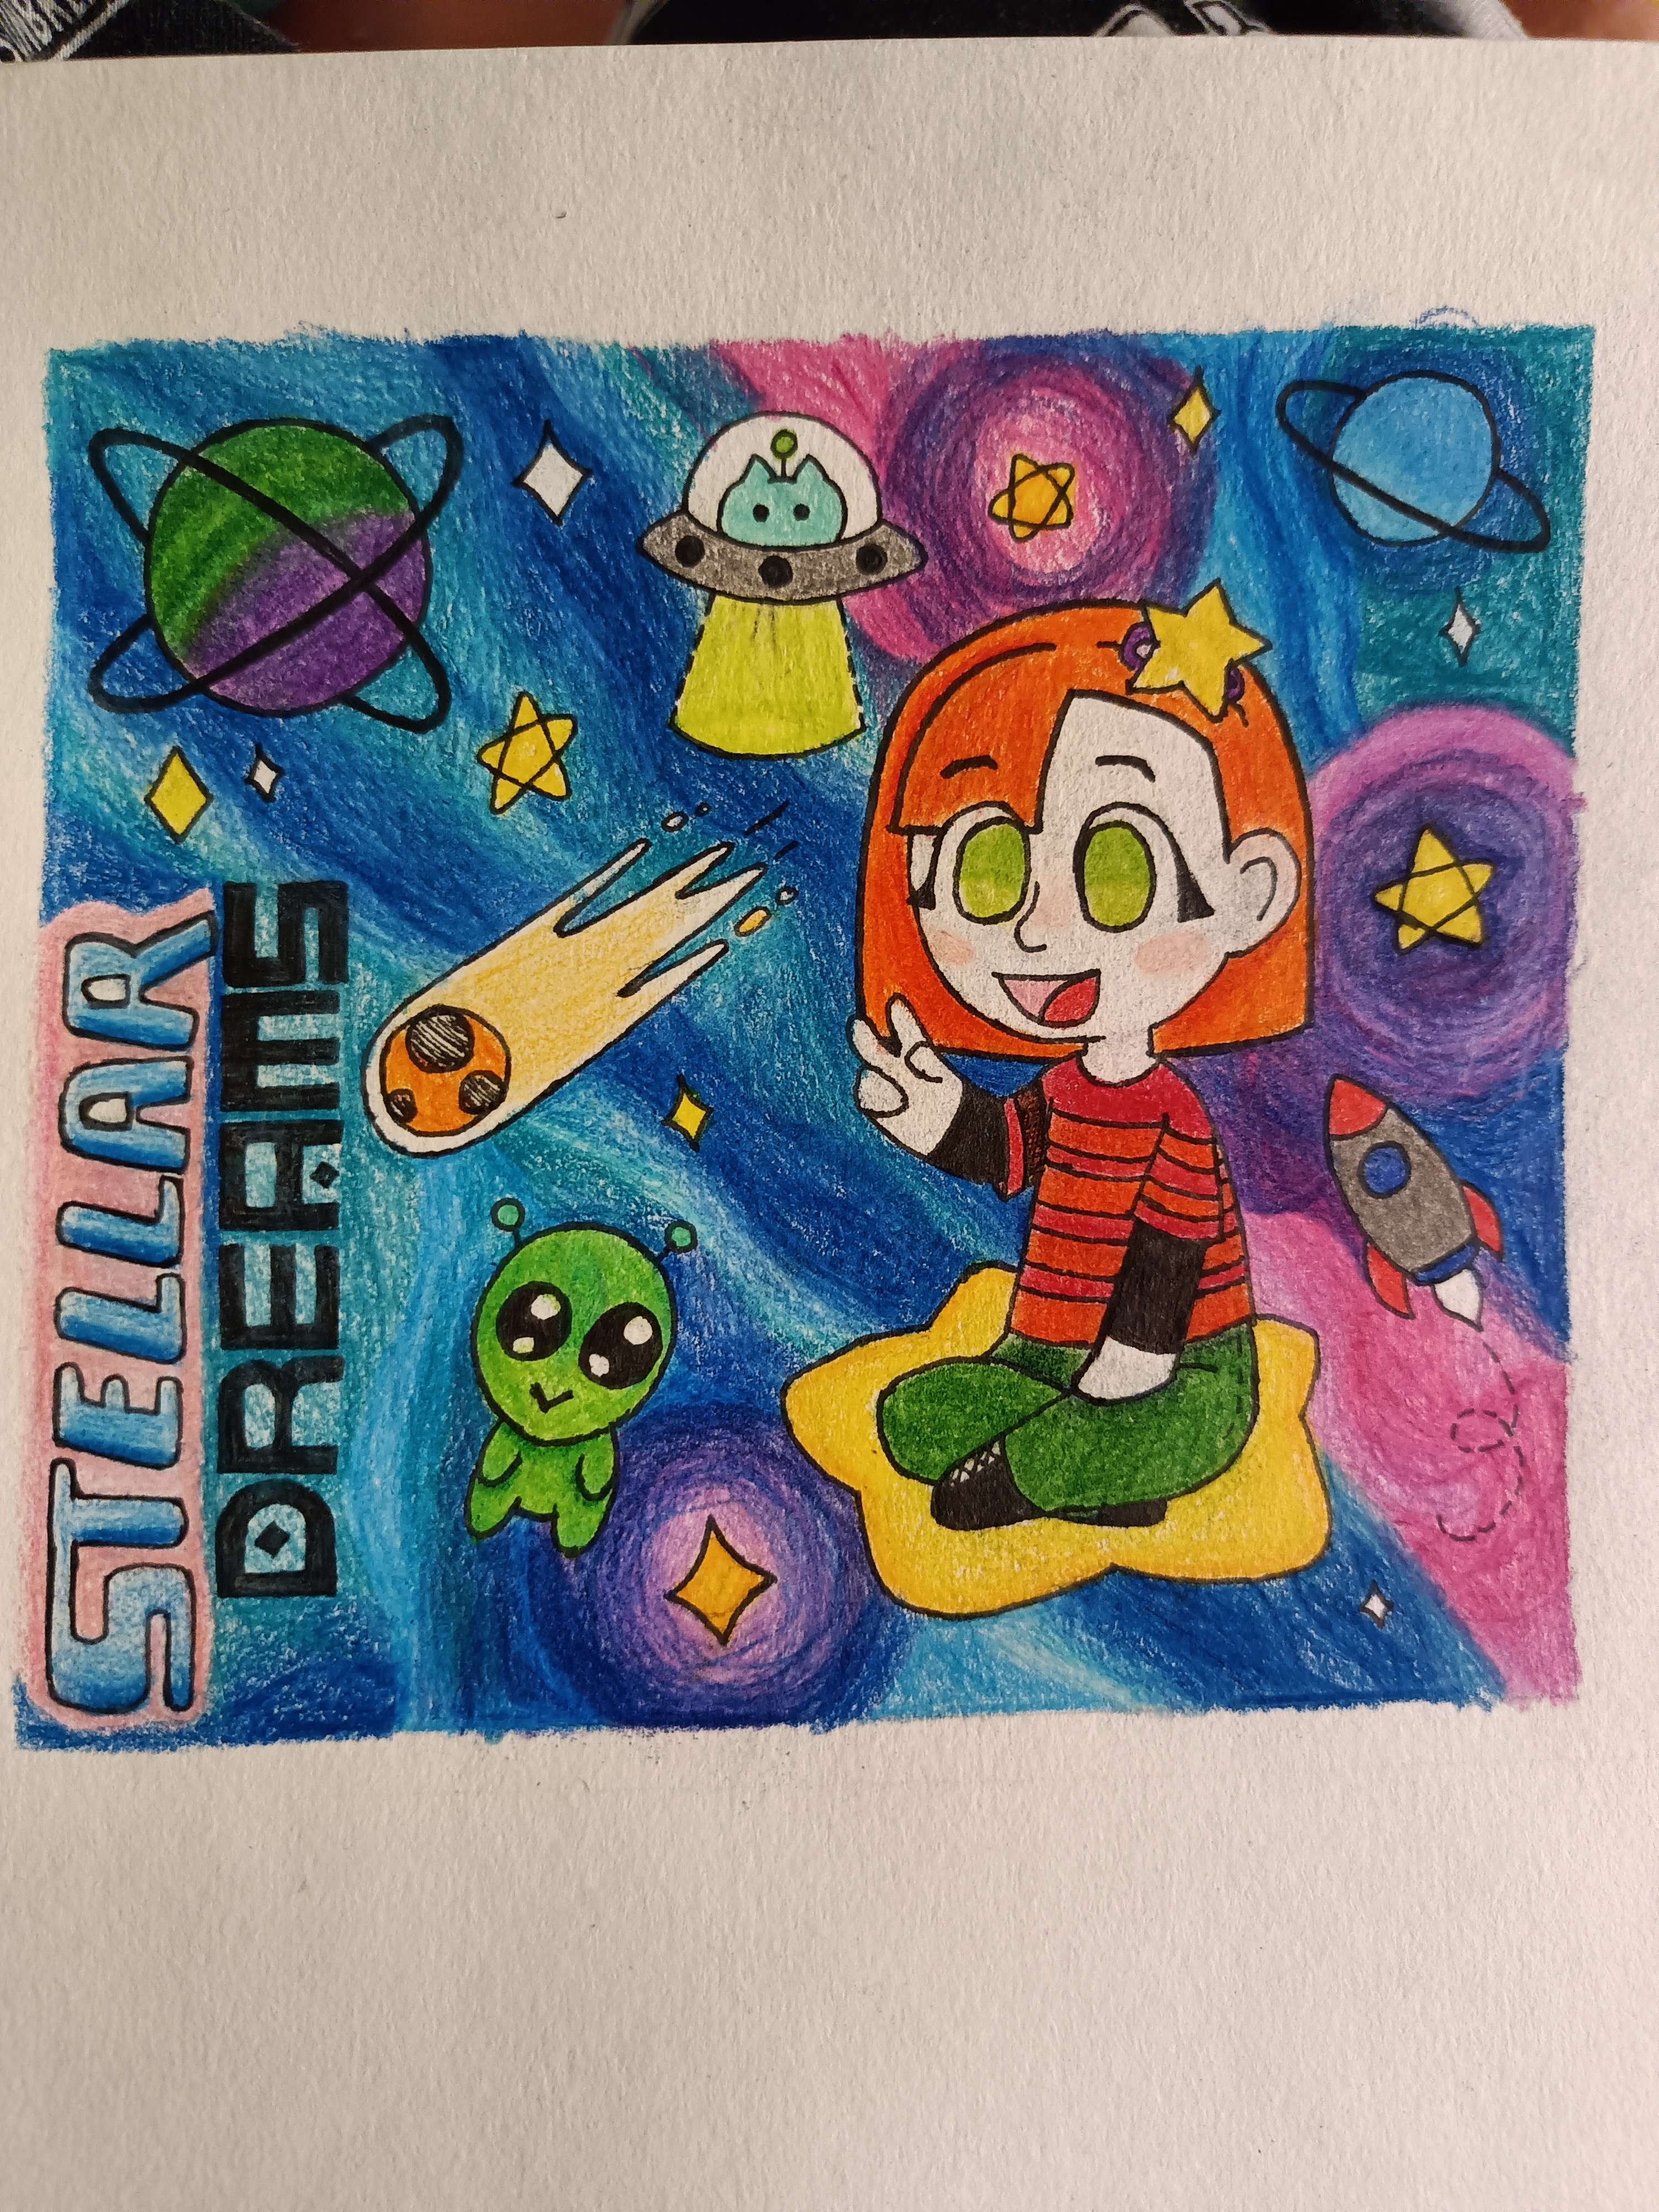 STELLAR
DREAMS